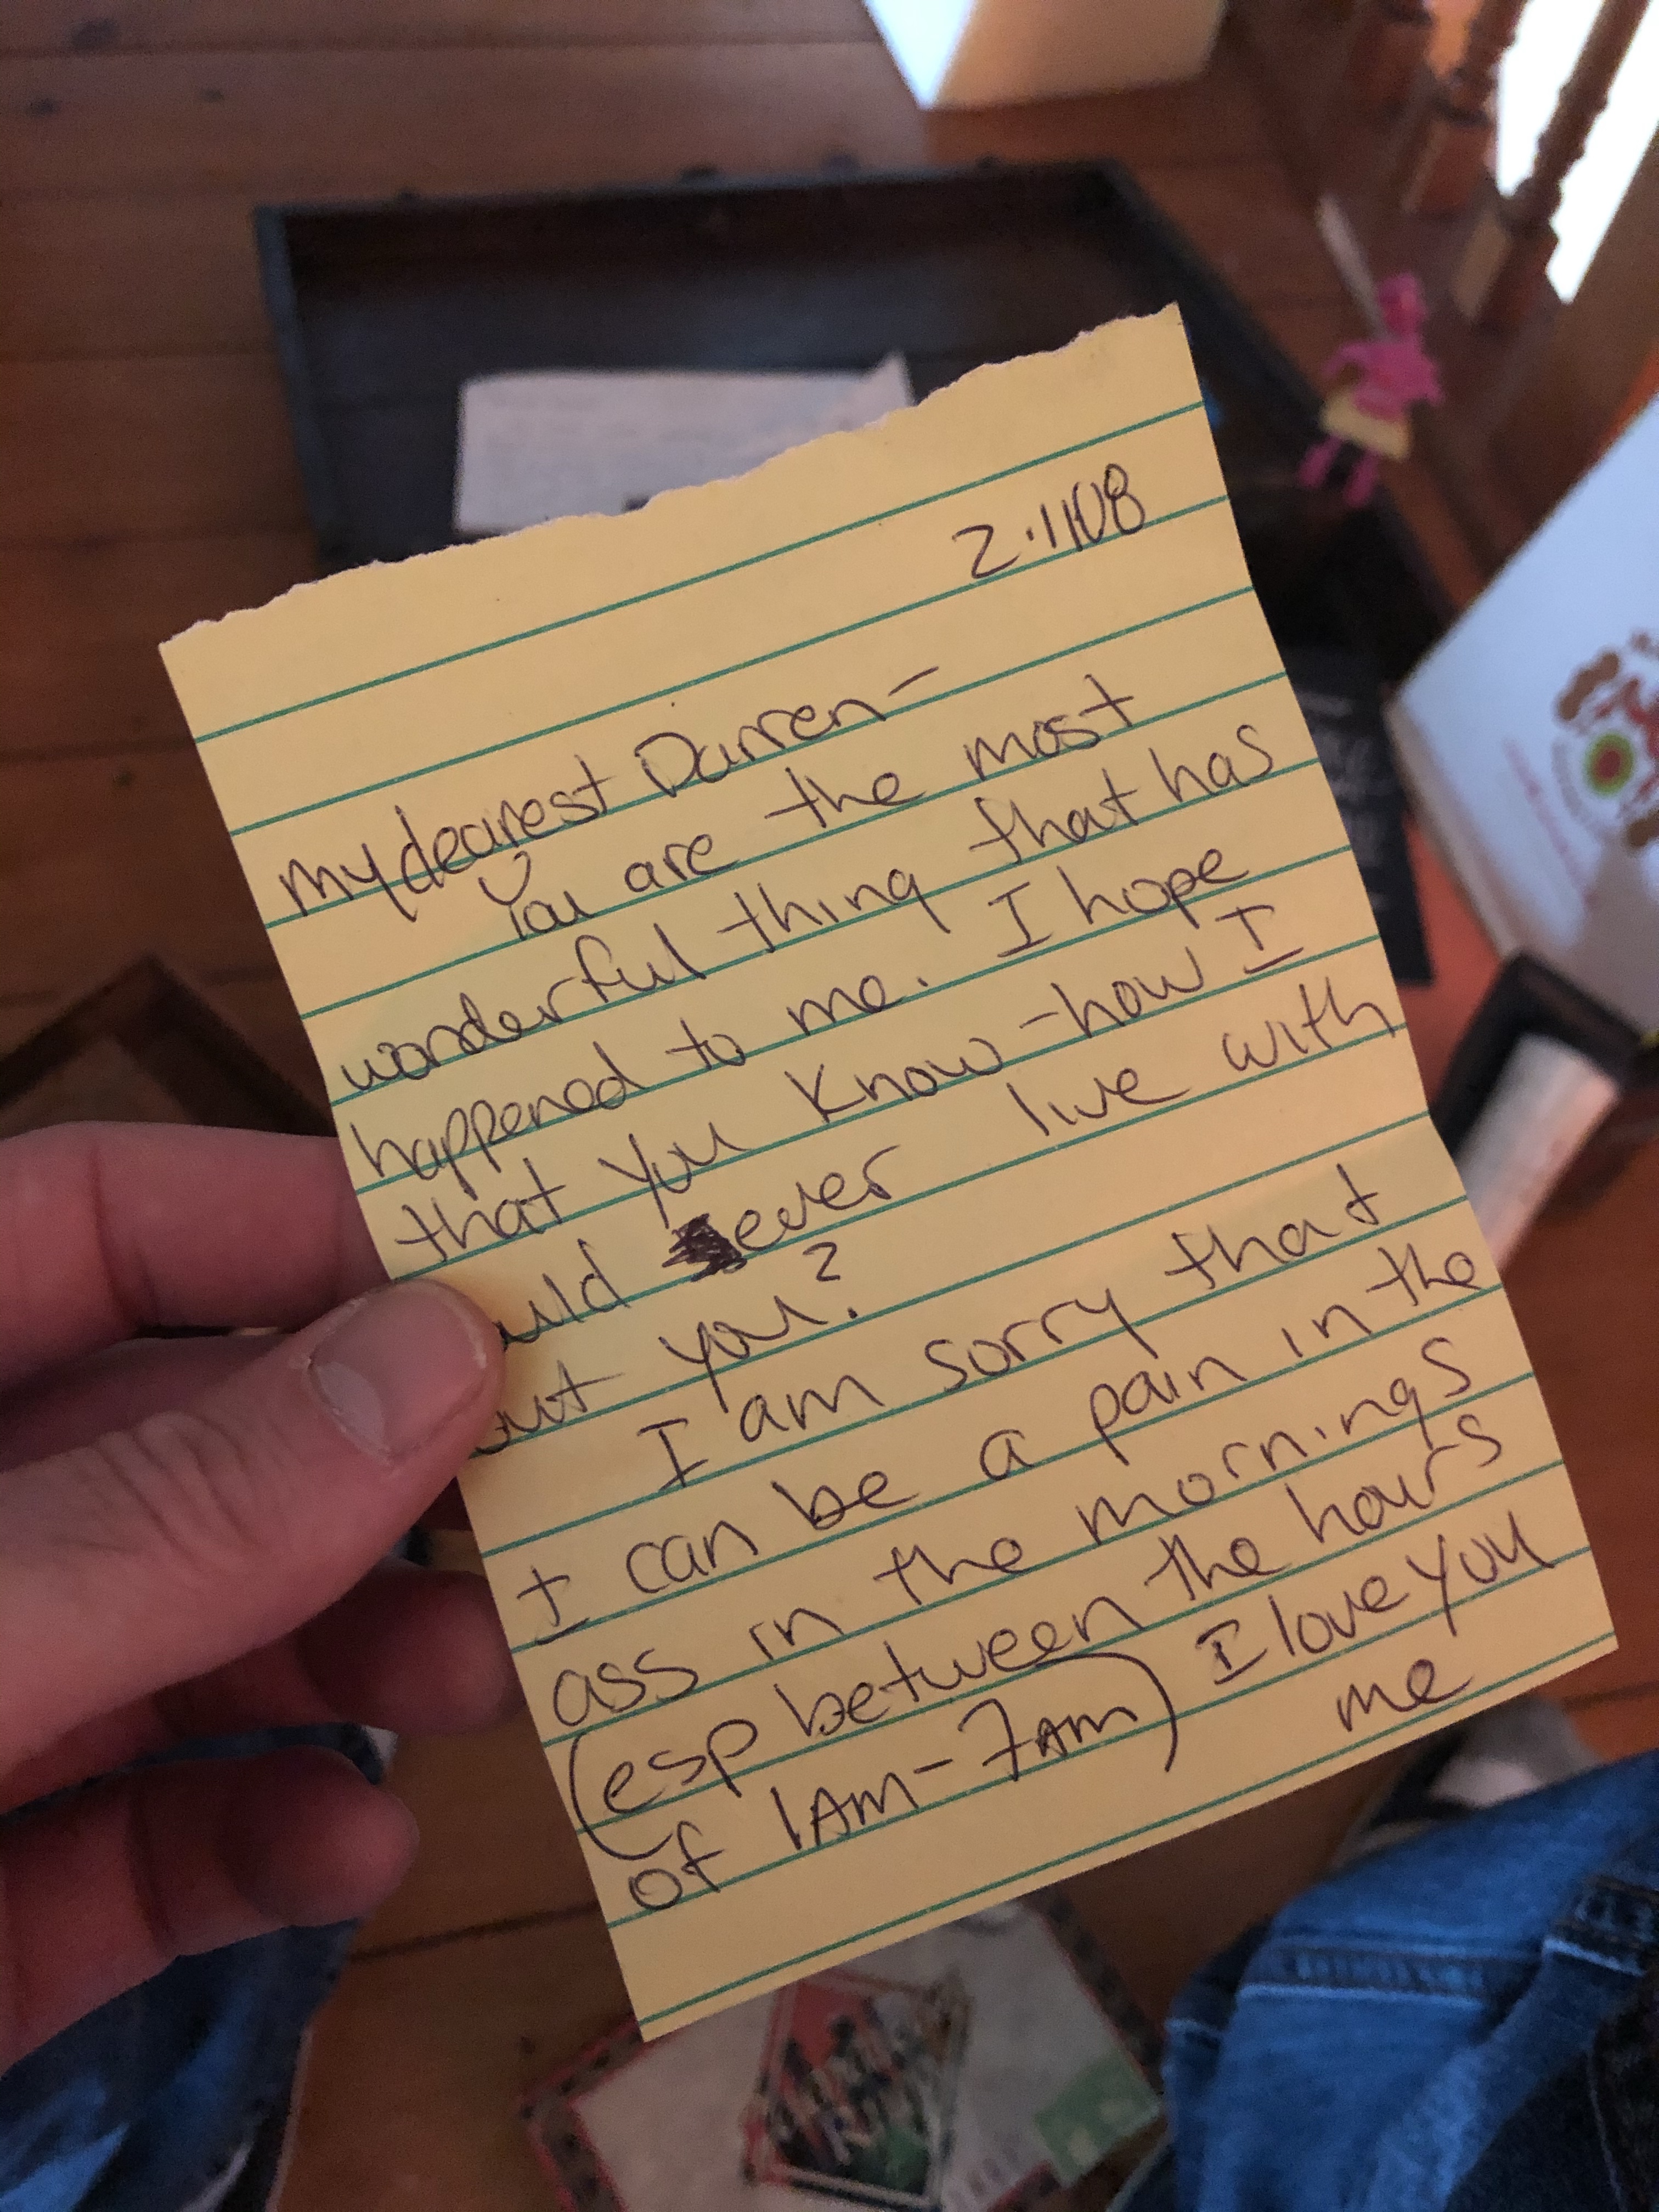 2.1108
my dearest Darren-
You are the most
wonderful thing that has
happened to me. I hope
that you know - how I
uld ever live with
out you?
I am sorry that
I can be a pain in the
ass in the mornings
(esp between the hours
of 1AM - 7AM) I love you
me